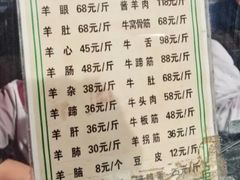 羊眼 68元/斤 酱羊肉 118元/斤
羊肚 68元/斤 牛窝骨筋 68元/斤
羊心 45元/斤 牛舌 98元/斤
羊肠 48元/斤 牛蹄筋 88元/斤
羊杂 38元/斤 牛肚 68元/斤
羊蹄 36元/斤 牛头肉 58元/斤
羊肝 36元/斤 牛板筋 48元/斤
羊肺 30元/斤 羊拐筋 36元/斤
羊脑 8元/个 豆皮 12元/斤
元/斤